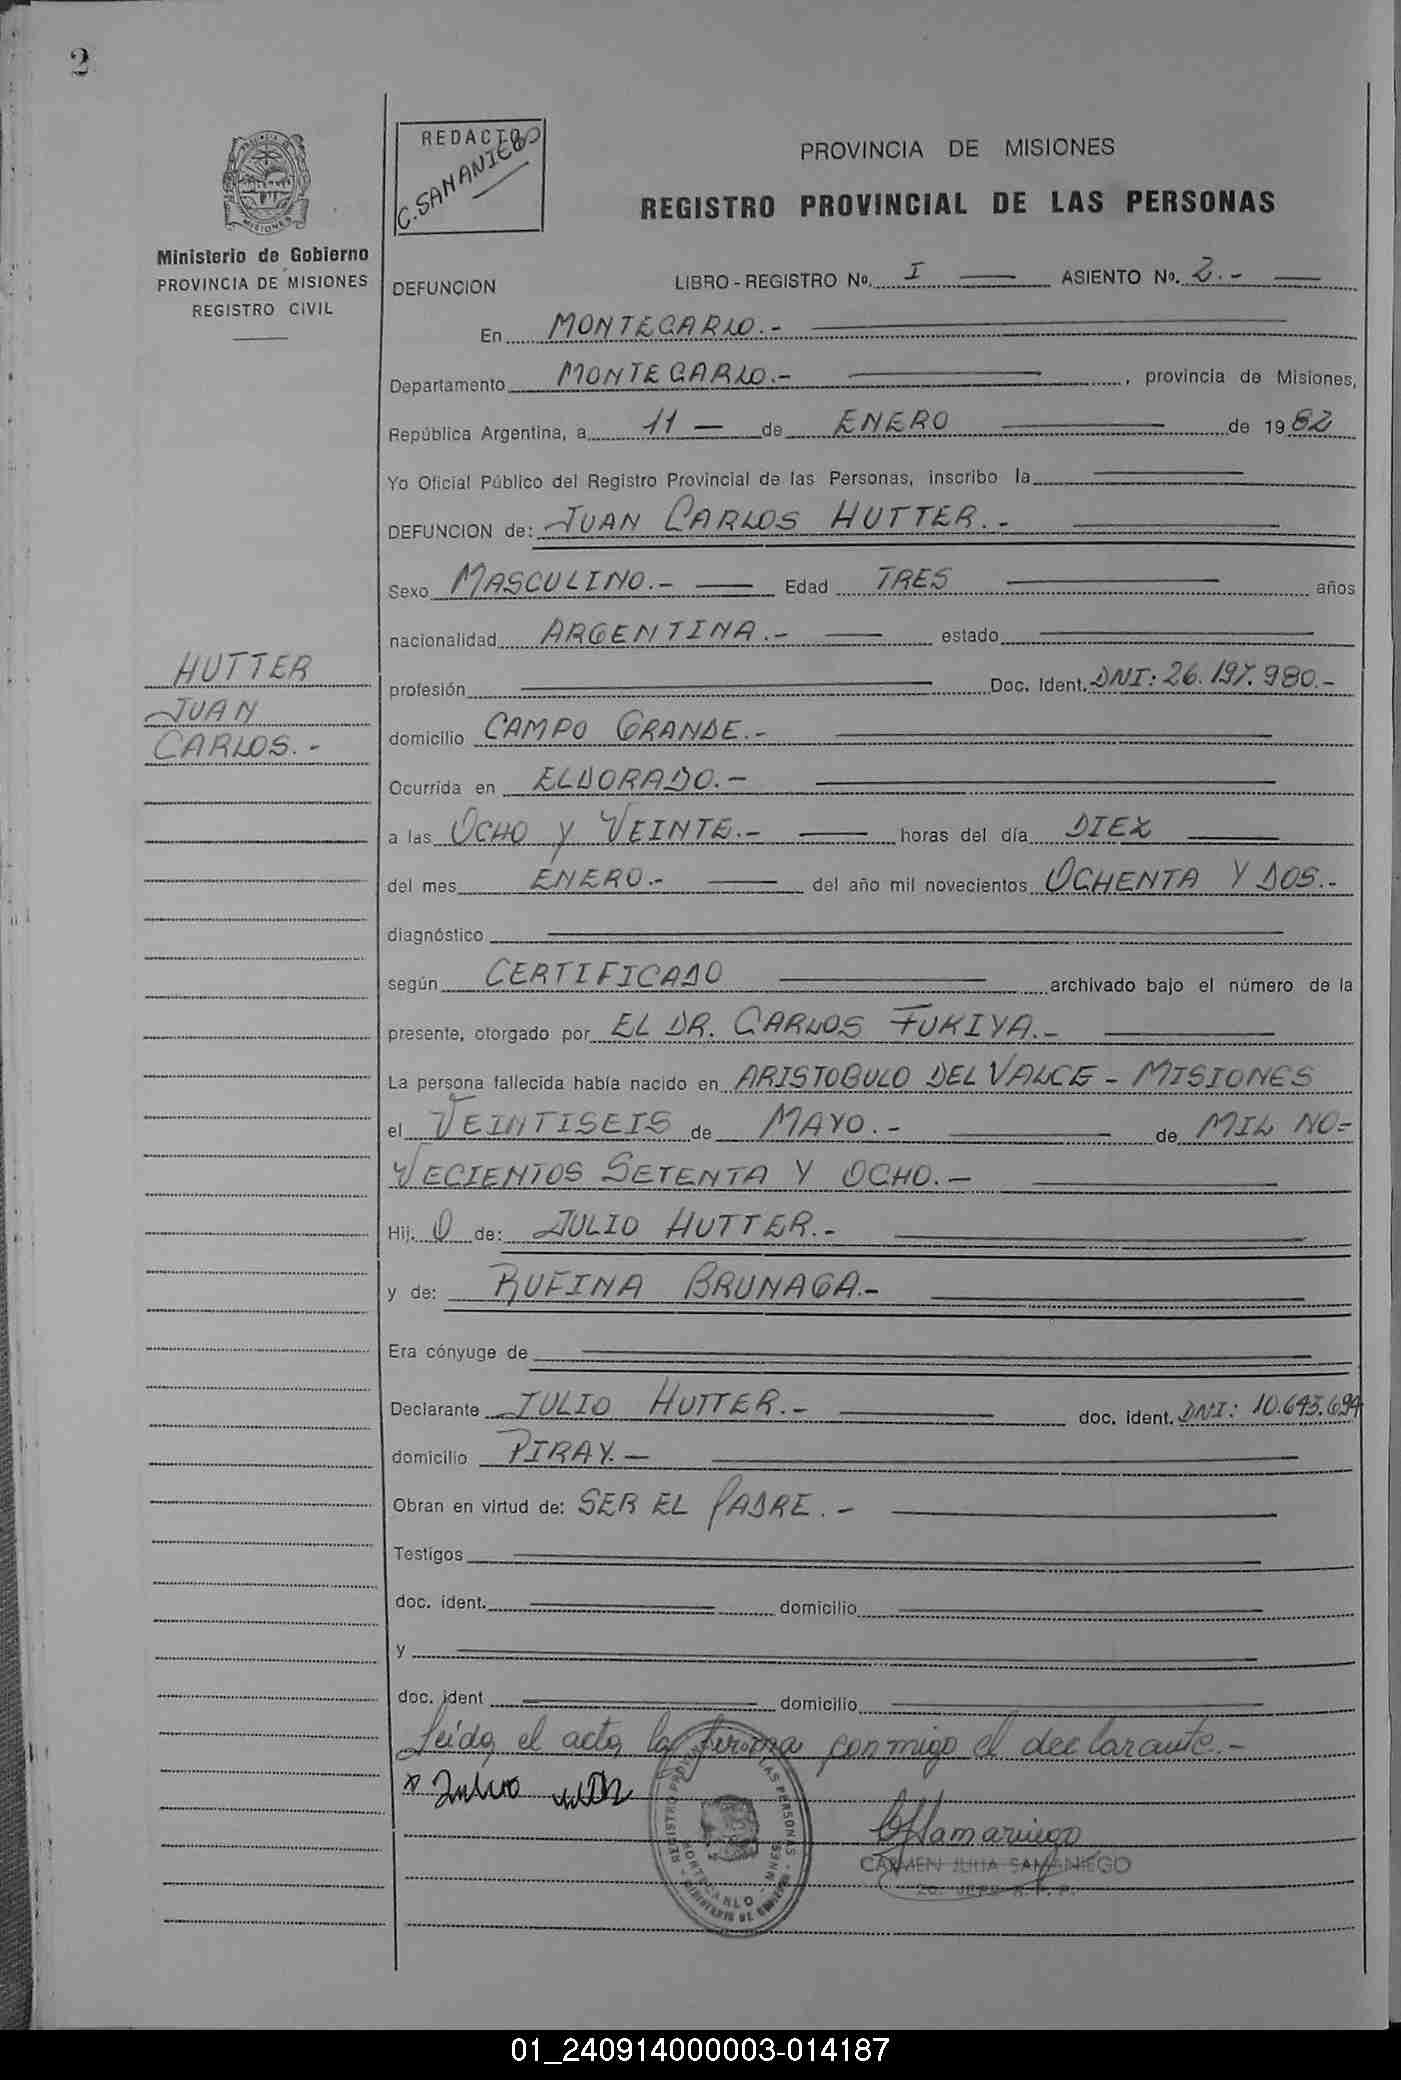 2
REDACTO
C. SAMANIEGO
PROVINCIA DE MISIONES
REGISTRO PROVINCIAL DE LAS PERSONAS
Ministerio de Gobierno
PROVINCIA DE MISIONES
REGISTRO CIVIL
DEFUNCION LIBRO - REGISTRO Nº. I ASIENTO Nº. 2.-
En MONTECARLO.-
Departamento MONTECARLO.- , provincia de Misiones,
República Argentina, a 11 de ENERO de 1982
Yo Oficial Público del Registro Provincial de las Personas, inscribo la
DEFUNCION de: JUAN CARLOS HUTTER.-
Sexo MASCULINO.- Edad TRES años
nacionalidad ARGENTINA.- estado
HUTTER
JUAN
CARLOS.-
profesión Doc. Ident. DNI: 26.197.980.-
domicilio CAMPO GRANDE.-
Ocurrida en ELDORADO.-
a las OCHO Y VEINTE.- horas del día DIEZ
del mes ENERO.- del año mil novecientos OCHENTA Y DOS.-
diagnóstico
según CERTIFICADO archivado bajo el número de la
presente, otorgado por EL DR. CARLOS FUKIYA.-
La persona fallecida había nacido en ARISTOBULO DEL VALLE - MISIONES
el VEINTISEIS de MAYO.- de MIL NO=
VECIENTOS SETENTA Y OCHO.-
Hij. O de: JULIO HUTTER.-
y de: RUFINA BRUNAGA.-
Era cónyuge de
Declarante JULIO HUTTER.- doc. ident. DNI: 10.643.694
domicilio PIRAY.-
Obran en virtud de: SER EL PADRE.-
Testigos
doc. ident. domicilio
y
doc. ident domicilio
Leida el acta, la firma conmigo el declarante.-
REGISTRO PROVINCIAL DE LAS PERSONAS
MONTECARLO - MNES
MINISTERIO DE GOBIERNO
CARMEN JULIA SAMANIEGO
2o. JEFE R. P. P.
01_240914000003-014187